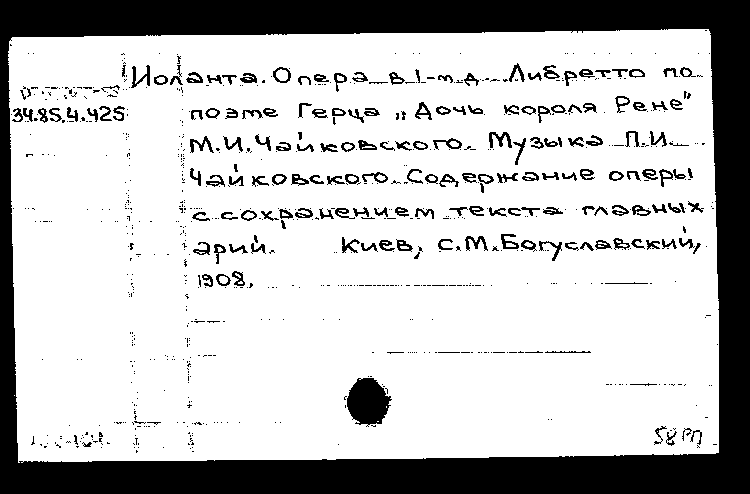 Иоланта. Опера в 1-м д. Либретто по
34.85.4.425
поэме Герца „Дочь короля Рене"
М.И.Чайковского. Музыка П.И.
Чайковского. Содержание оперы
с сохранением текста главных
арий. Киев, С.М.Богуславский,
1908.
58 РП